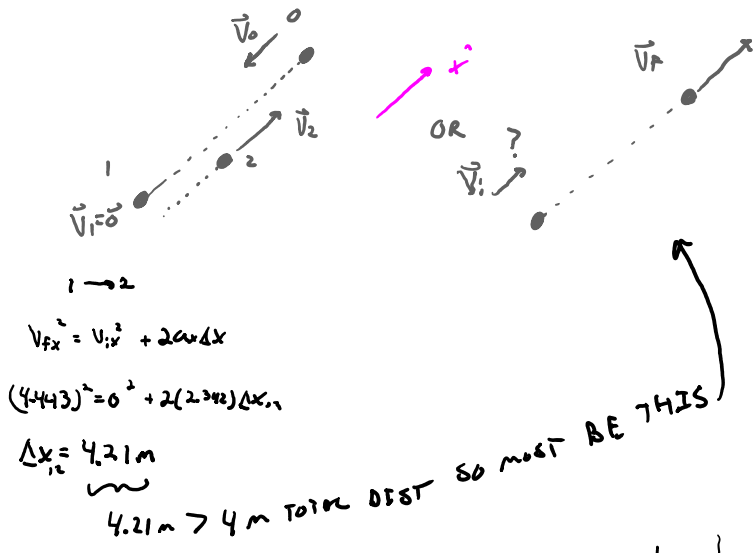 V⃗₀ 0
V⃗₂
2
1
V⃗₁=0⃗
x̂
OR ?
V⃗ᵢ
V⃗f
1 → 2
Vfx² = Vix² + 2axΔx
(4.443)² = 0² + 2(2.342)Δx₁₂
Δx₁₂ = 4.21m
4.21m > 4m TOTAL DIST SO MOST BE THIS